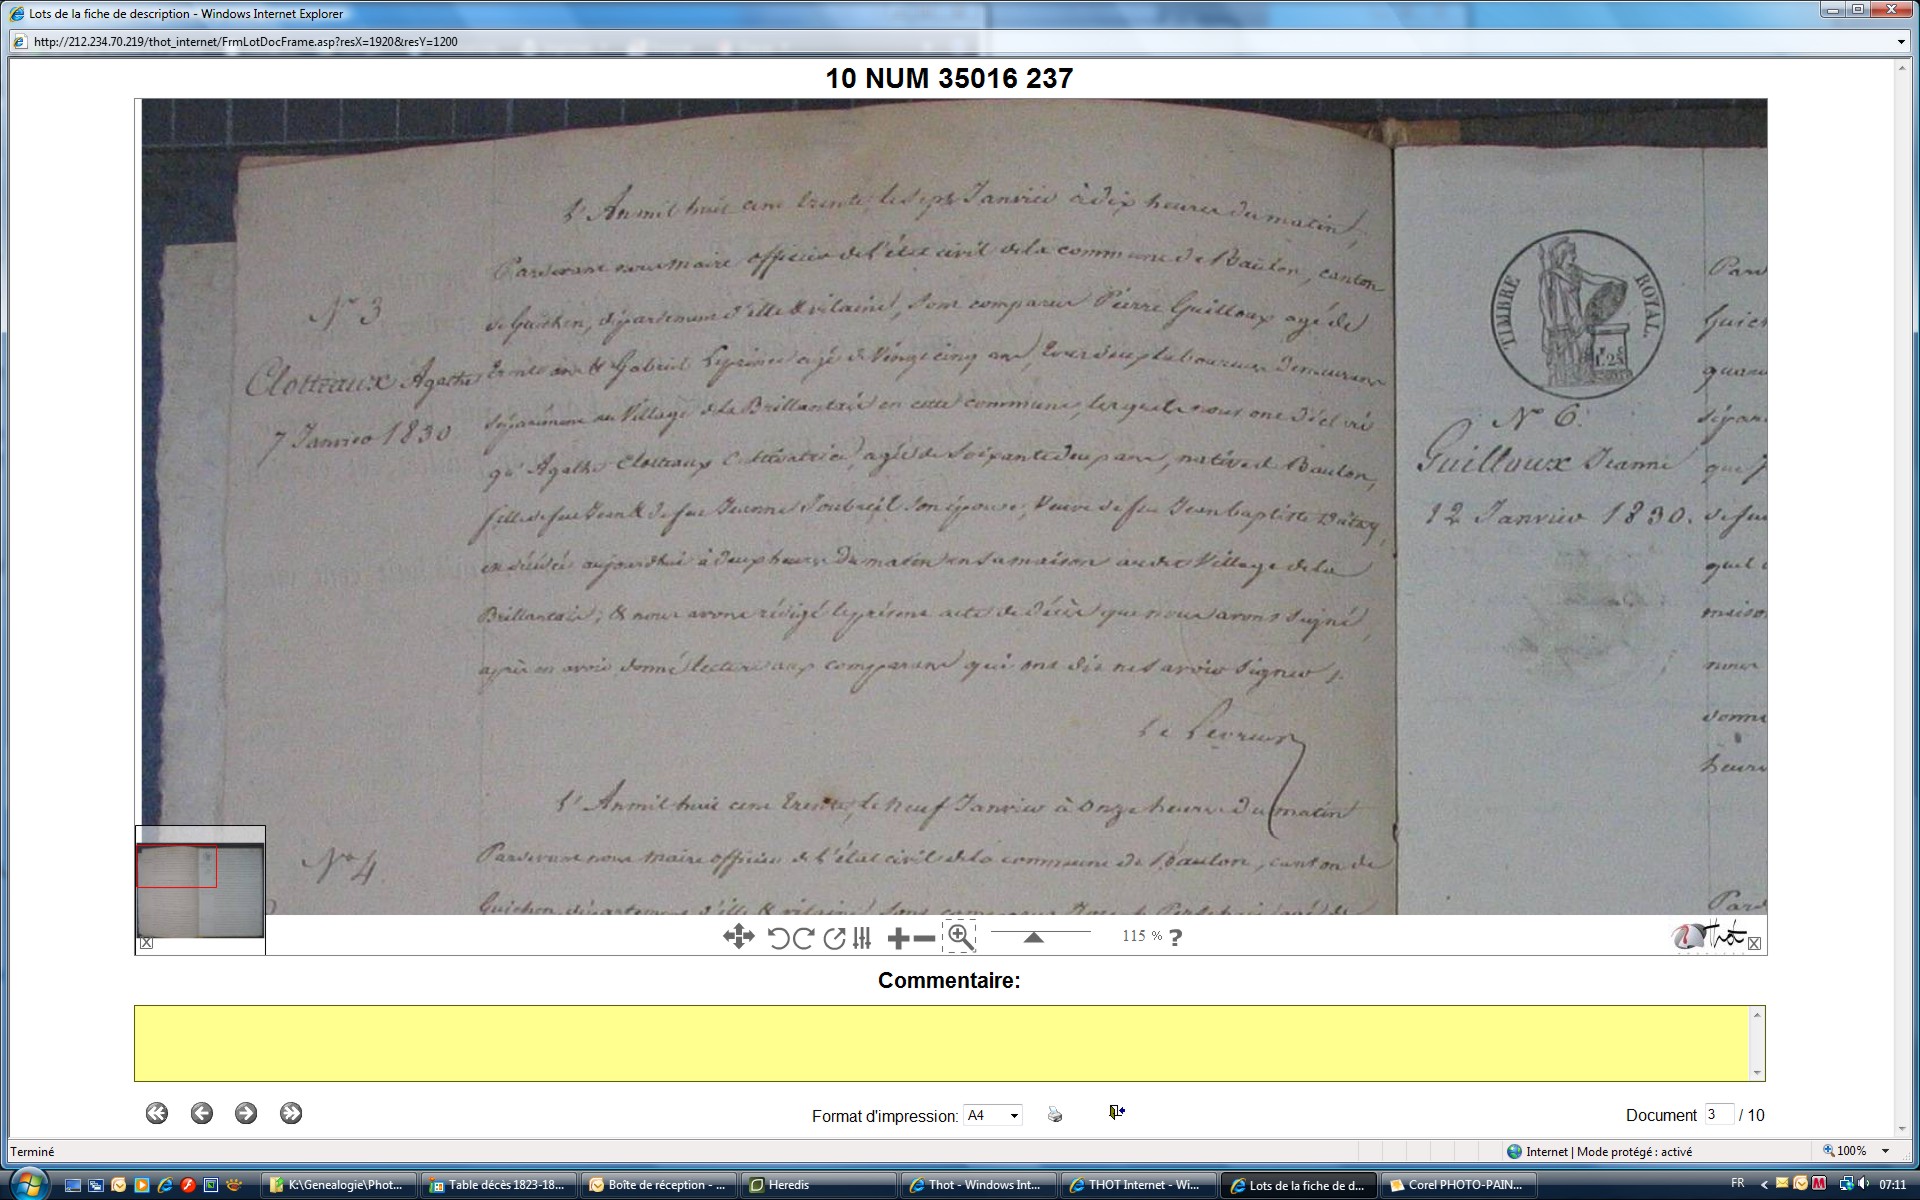 Lots de la fiche de description - Windows Internet Explorer
http://212.234.70.219/thot_internet/FrmLotDocFrame.asp?resX=1920&resY=1200
10 NUM 35016 237
L'An mil huit cent trente, le sept Janvier à dix heures du matin,
Pardevant nous Maire officier de l'état civil de la commune de Baulon, canton
de Guichen, département d'ille & vilaine, sont comparus Pierre Guilloux agé de
trente ans & Gabriel Leprince agé de Vingt cinq ans, tous deux laboureurs demeurans
séparément au Village de la Brillantais en cette commune, lesquels nous ont déclaré
qu'Agathe Clotteaux Cultivatrice, agée de Soixante deux ans, native de Baulon,
fille de feu Jean & de feue Jeanne son épouse, Veuve de feu Jean baptiste
est décédée aujourdhui à deux heures du matin en sa maison audit Village de la
Brillantais, & nous avons rédigé le présent acte de décès que nous avons signé,
après en avoir donné lecture aux comparans qui ont dit ne savoir signer.
N° 3
Clotteaux Agathe
7 Janvier 1830
L'An mil huit cent trente, le neuf Janvier à onze heures du matin
Pardevant nous Maire officier de l'état civil de la commune de Baulon, canton de
Guichen, département d'ille & vilaine, sont comparus
N° 4
TIMBRE ROYAL
N° 6.
Guilloux Jeanne
12 Janvier 1830.
Thot
115 % ?
Commentaire:
Format d'impression: A4
Document 3 / 10
Terminé
Internet | Mode protégé : activé
100%
K:\Genealogie\Phot...
Table décès 1823-18...
Boîte de réception - ...
Heredis
Thot - Windows Int...
THOT Internet - Wi...
Lots de la fiche de d...
Corel PHOTO-PAIN...
FR
07:11